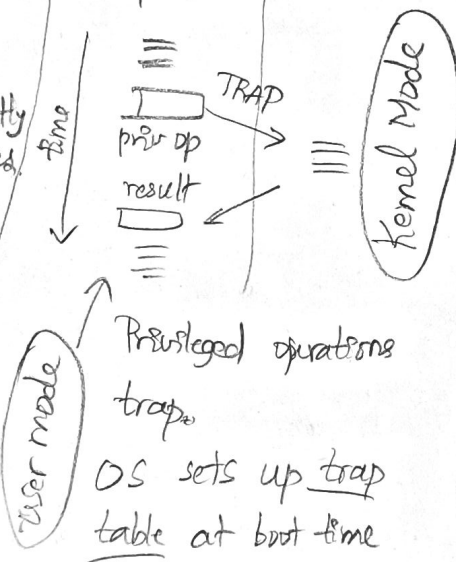 time
TRAP
priv op
result
Kernel Mode
User mode
Privileged operations
trap.
OS sets up trap
table at boot time